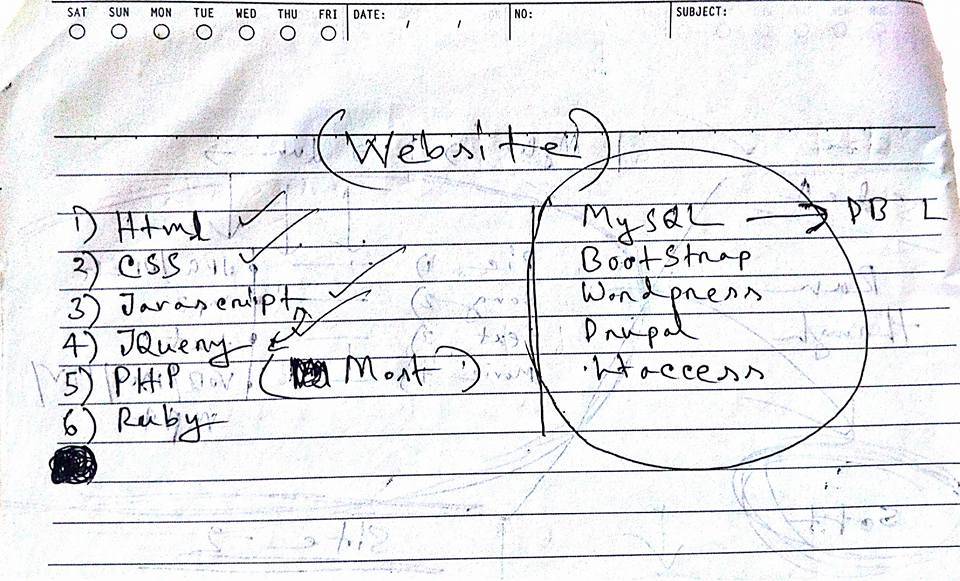 SAT SUN MON TUE WED THU FRI DATE: / / NO: SUBJECT:
(Website)
1) Html ✓
2) CSS ✓
3) Javascript ✓
4) JQuery ✓
5) PHP (Most)
6) Ruby
MySQL → DB L
BootStrap
Wordpress
Drupal
.htaccess